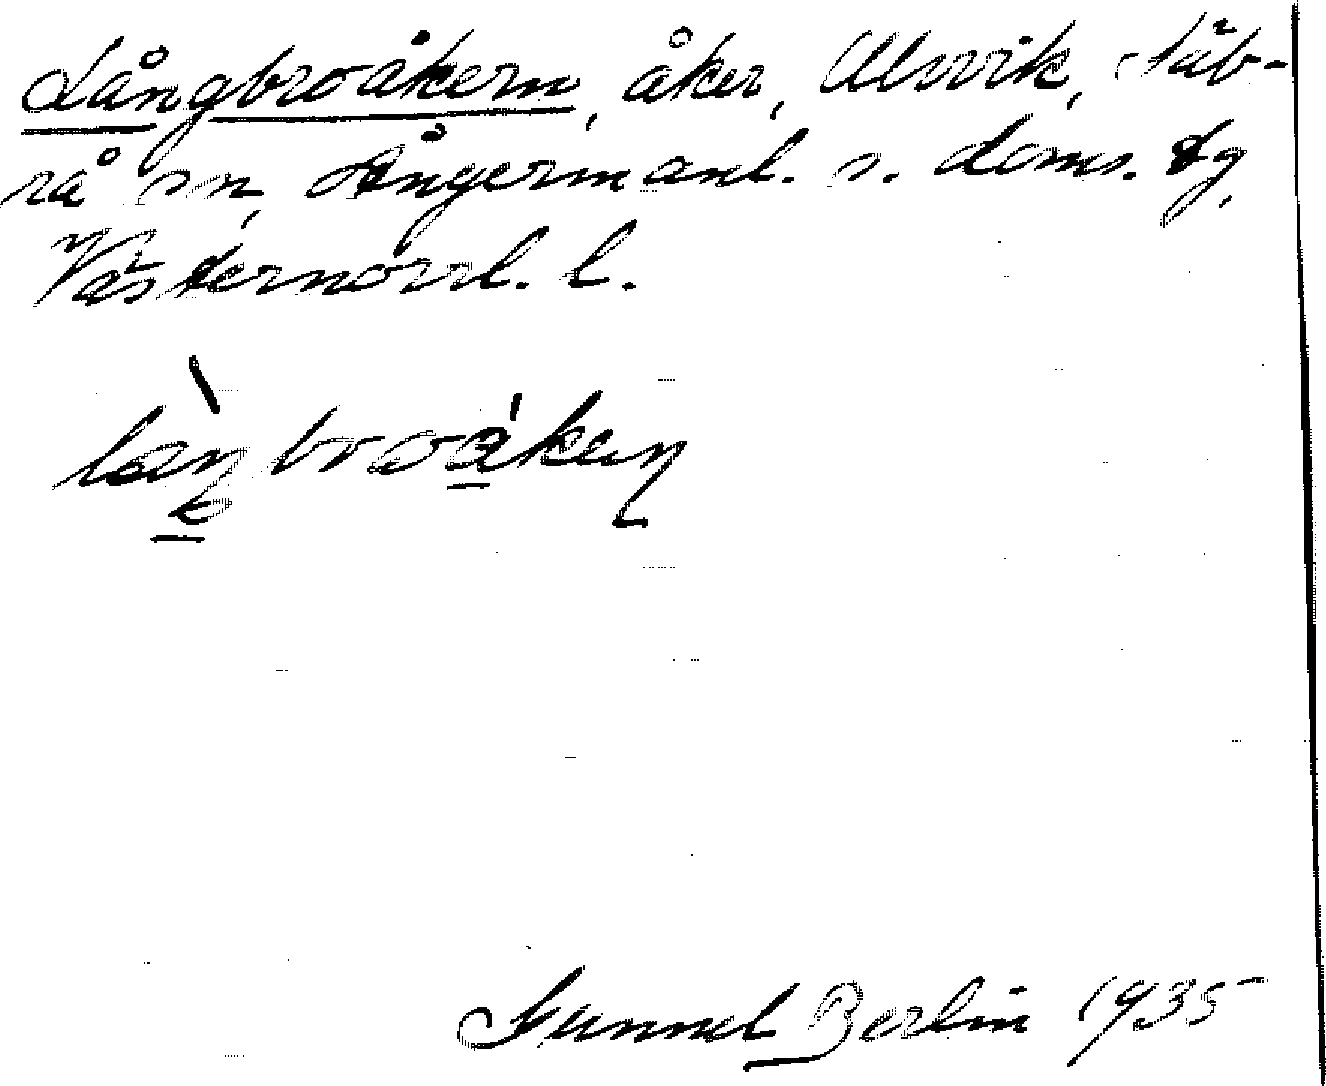 Långbroåkern, åker, Ulvvik, Säb-
rå sn, Ångermanl. s. doms. tg,
Västernorrl. l.
Gunnel Berlin 1935